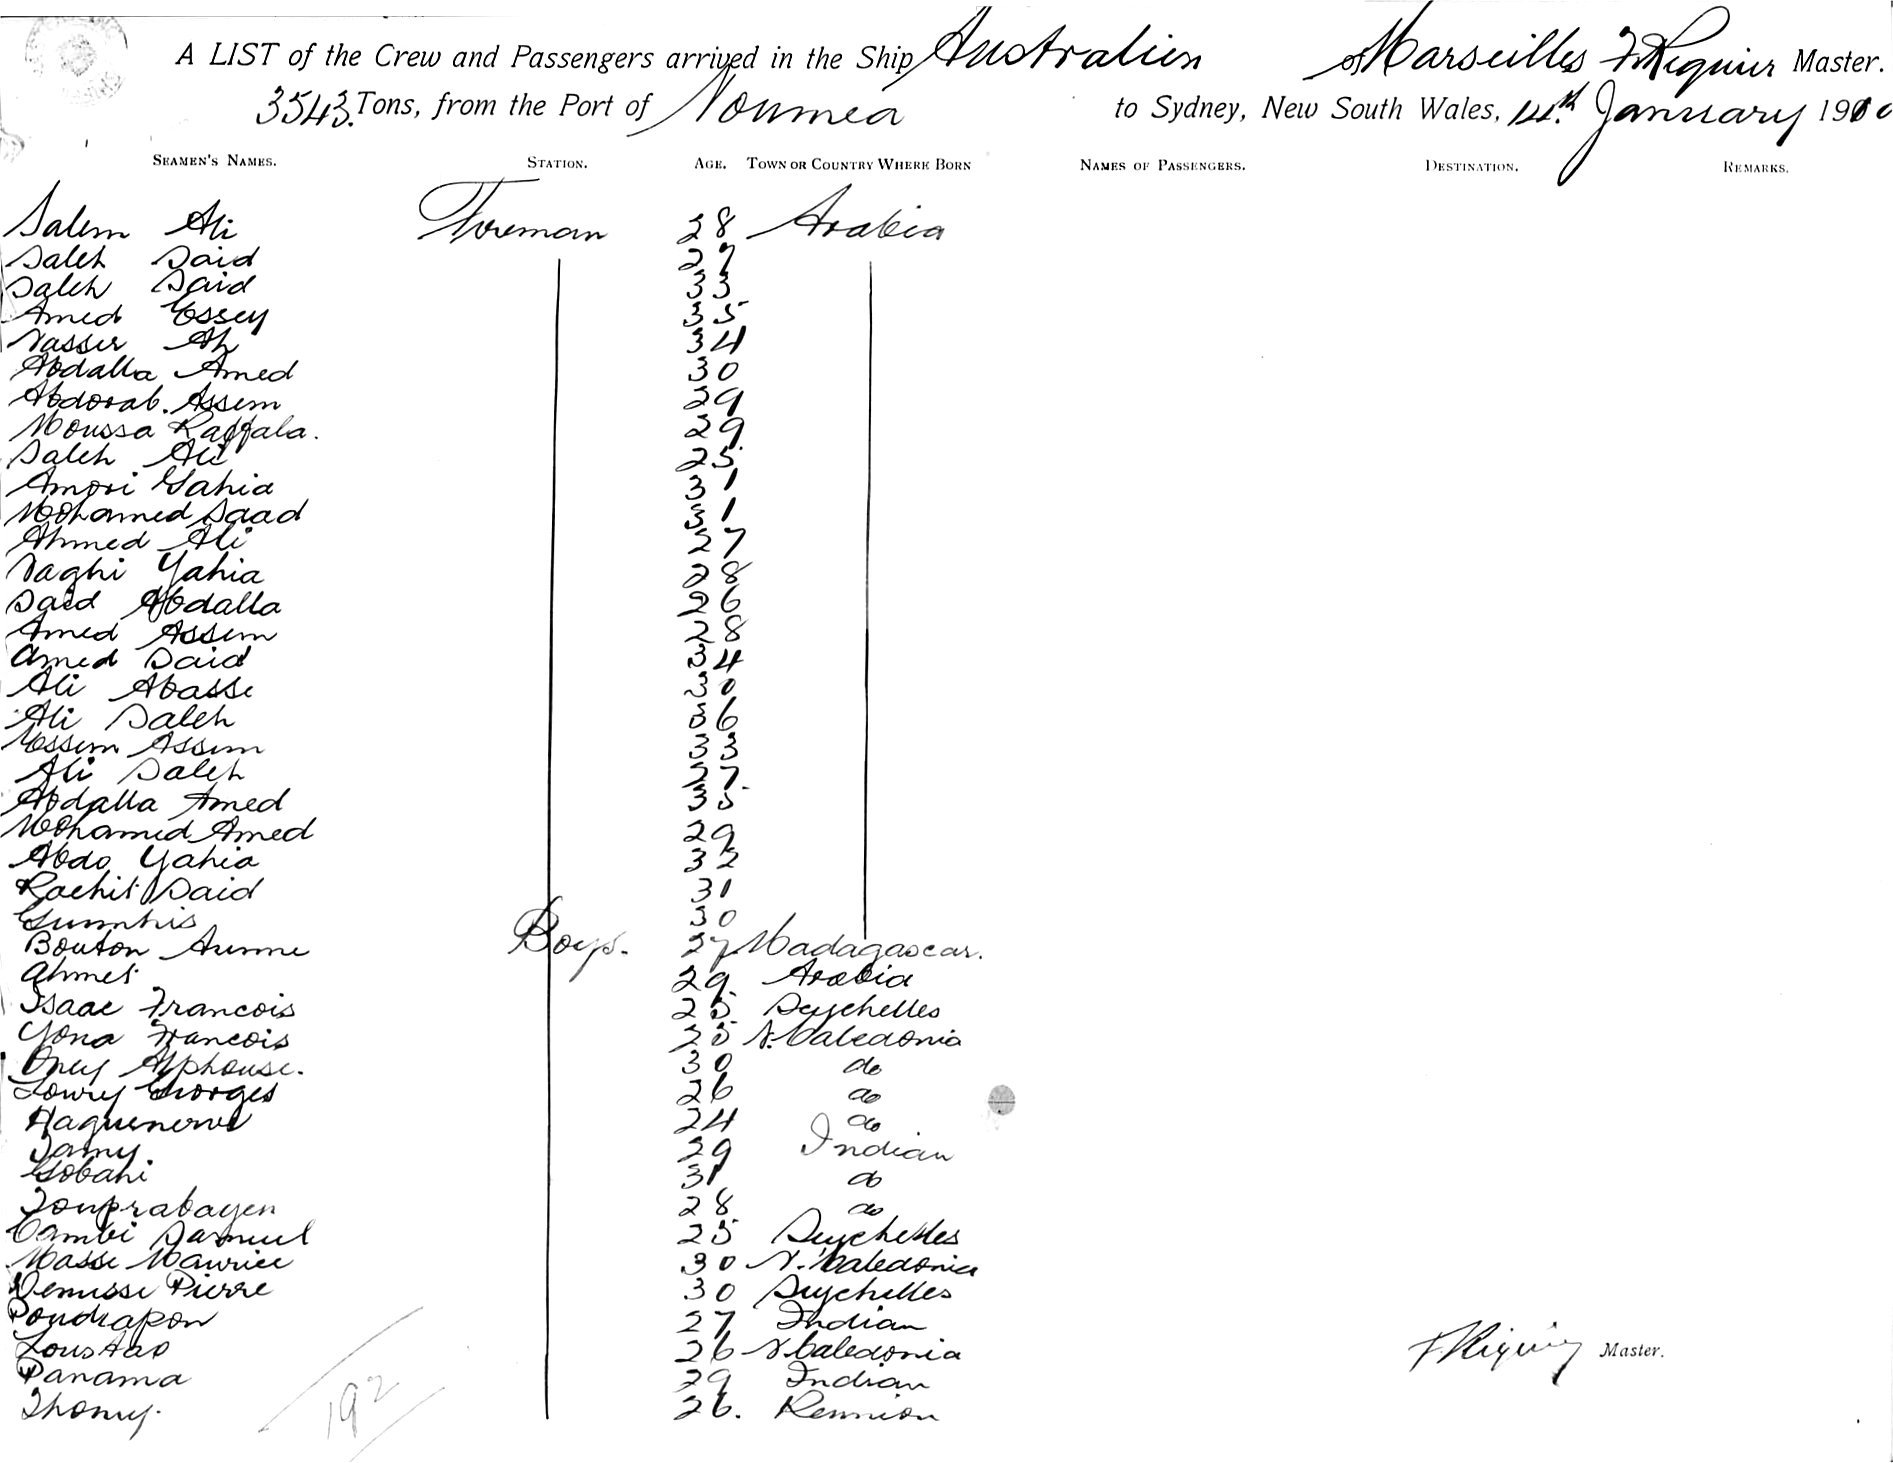 A LIST of the Crew and Passengers arrived in the Ship Australien of Marseilles F Riquier Master.
3543. Tons, from the Port of Noumea to Sydney, New South Wales, 14th January 1910
SEAMEN'S NAMES. STATION. AGE. TOWN OR COUNTRY WHERE BORN NAMES OF PASSENGERS. DESTINATION. REMARKS.
Salem Ali Fireman 28 Arabia
Saleh Said 27
Saleh Said 33
Amed Essey 35
Nasser Ali 34
Abdalla Amed 30
Abdorab. Assem 29
Moussa Raffala. 29
Saleh Ali 25
Amori Gahia 31
Mohamed Saad 31
Ahmed Ali 27
Naghi Yahia 28
Said Abdalla 26
Amed Assem 28
Amed Said 34
Ali Abasse 30
Ali Saleh 36
Essem Assem 33
Ali Saleh 27
Abdalla Amed 35
Mohamed Amed 29
Abdo Yahia 32
Rachit Said 31
30
Bouton Boys. 27 Madagascar.
Ahmet 29. Arabia
Isaac Francois 25 Seychelles
Yona Francois 25 N. Caledonia
Oney Alphouse. 30 do
Lowry Georges 26 do
24 do
Samy. 29 Indian
Gobani 31 do
Souprabayen 28 do
Cambi Samuel 25 Seychelles
Masse Maurice 30 N. Caledonia
Denusse Pierre 30 Seychelles
Poudrapon 27 Indian
Loustao 26 N. Caledonia
Panama 29 Indian
Thomy. 26. Reunion
F Riquier Master.
192